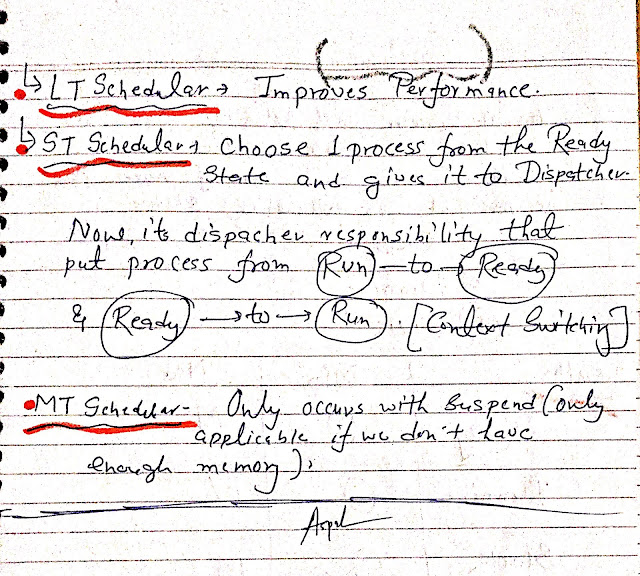 ↳ LT Schedular → Improves Performance.
↳ ST Schedular → Choose 1 process from the Ready
State and gives it to Dispatcher.
Now, its dispacher responsibility that
put process from Run → to → Ready
& Ready → to → Run. [Context Switching]
• MT Schedular - Only occurs with Suspend (only
applicable if we don't have
enough memory).